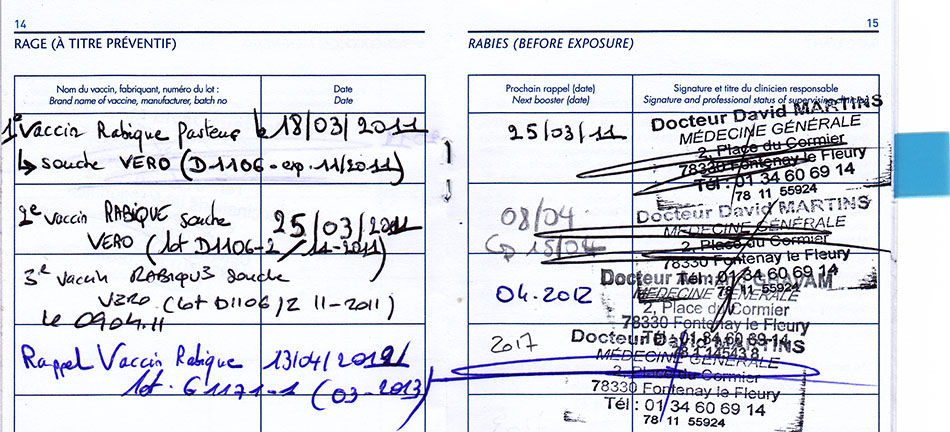 14
15
RAGE (À TITRE PRÉVENTIF)
RABIES (BEFORE EXPOSURE)
Nom du vaccin, fabriquant, numéro du lot :
Brand name of vaccine, manufacturer, batch no
Date
Date
Prochain rappel (date)
Next booster (date)
Signature et titre du clinicien responsable
Signature and professional status of supervising clinician
1e Vaccin Rabique Pasteur le 18/03/2011
↳ souche VERO (D1106 - exp. 11/2011)
25/03/11
Docteur David MARTINS
MÉDECINE GÉNÉRALE
2, Place du Cormier
78330 Fontenay le Fleury
Tél : 01 34 60 69 14
78 11 55924
2e vaccin RABIQUE souche 25/03/2011
VERO (lot D1106-2 / 11-2011)
08/04
15/04
Docteur David MARTINS
MÉDECINE GÉNÉRALE
2, Place du Cormier
78330 Fontenay le Fleury
Tél : 01 34 60 69 14
78 11 55924
3e vaccin RABIQUE souche
VERO (lot D1106/2 11-2011)
le 09.04.11
04.2012
Docteur
MÉDECINE GÉNÉRALE
2, Place du Cormier
78330 Fontenay le Fleury
Tél : 01 34 60 69 14
Rappel Vaccin Rabique 13/04/2012
lot. G1171-1 (03-2013)
2017
Docteur David MARTINS
MÉDECINE GÉNÉRALE
2, Place du Cormier
78330 Fontenay le Fleury
Tél : 01 34 60 69 14
78 11 55924